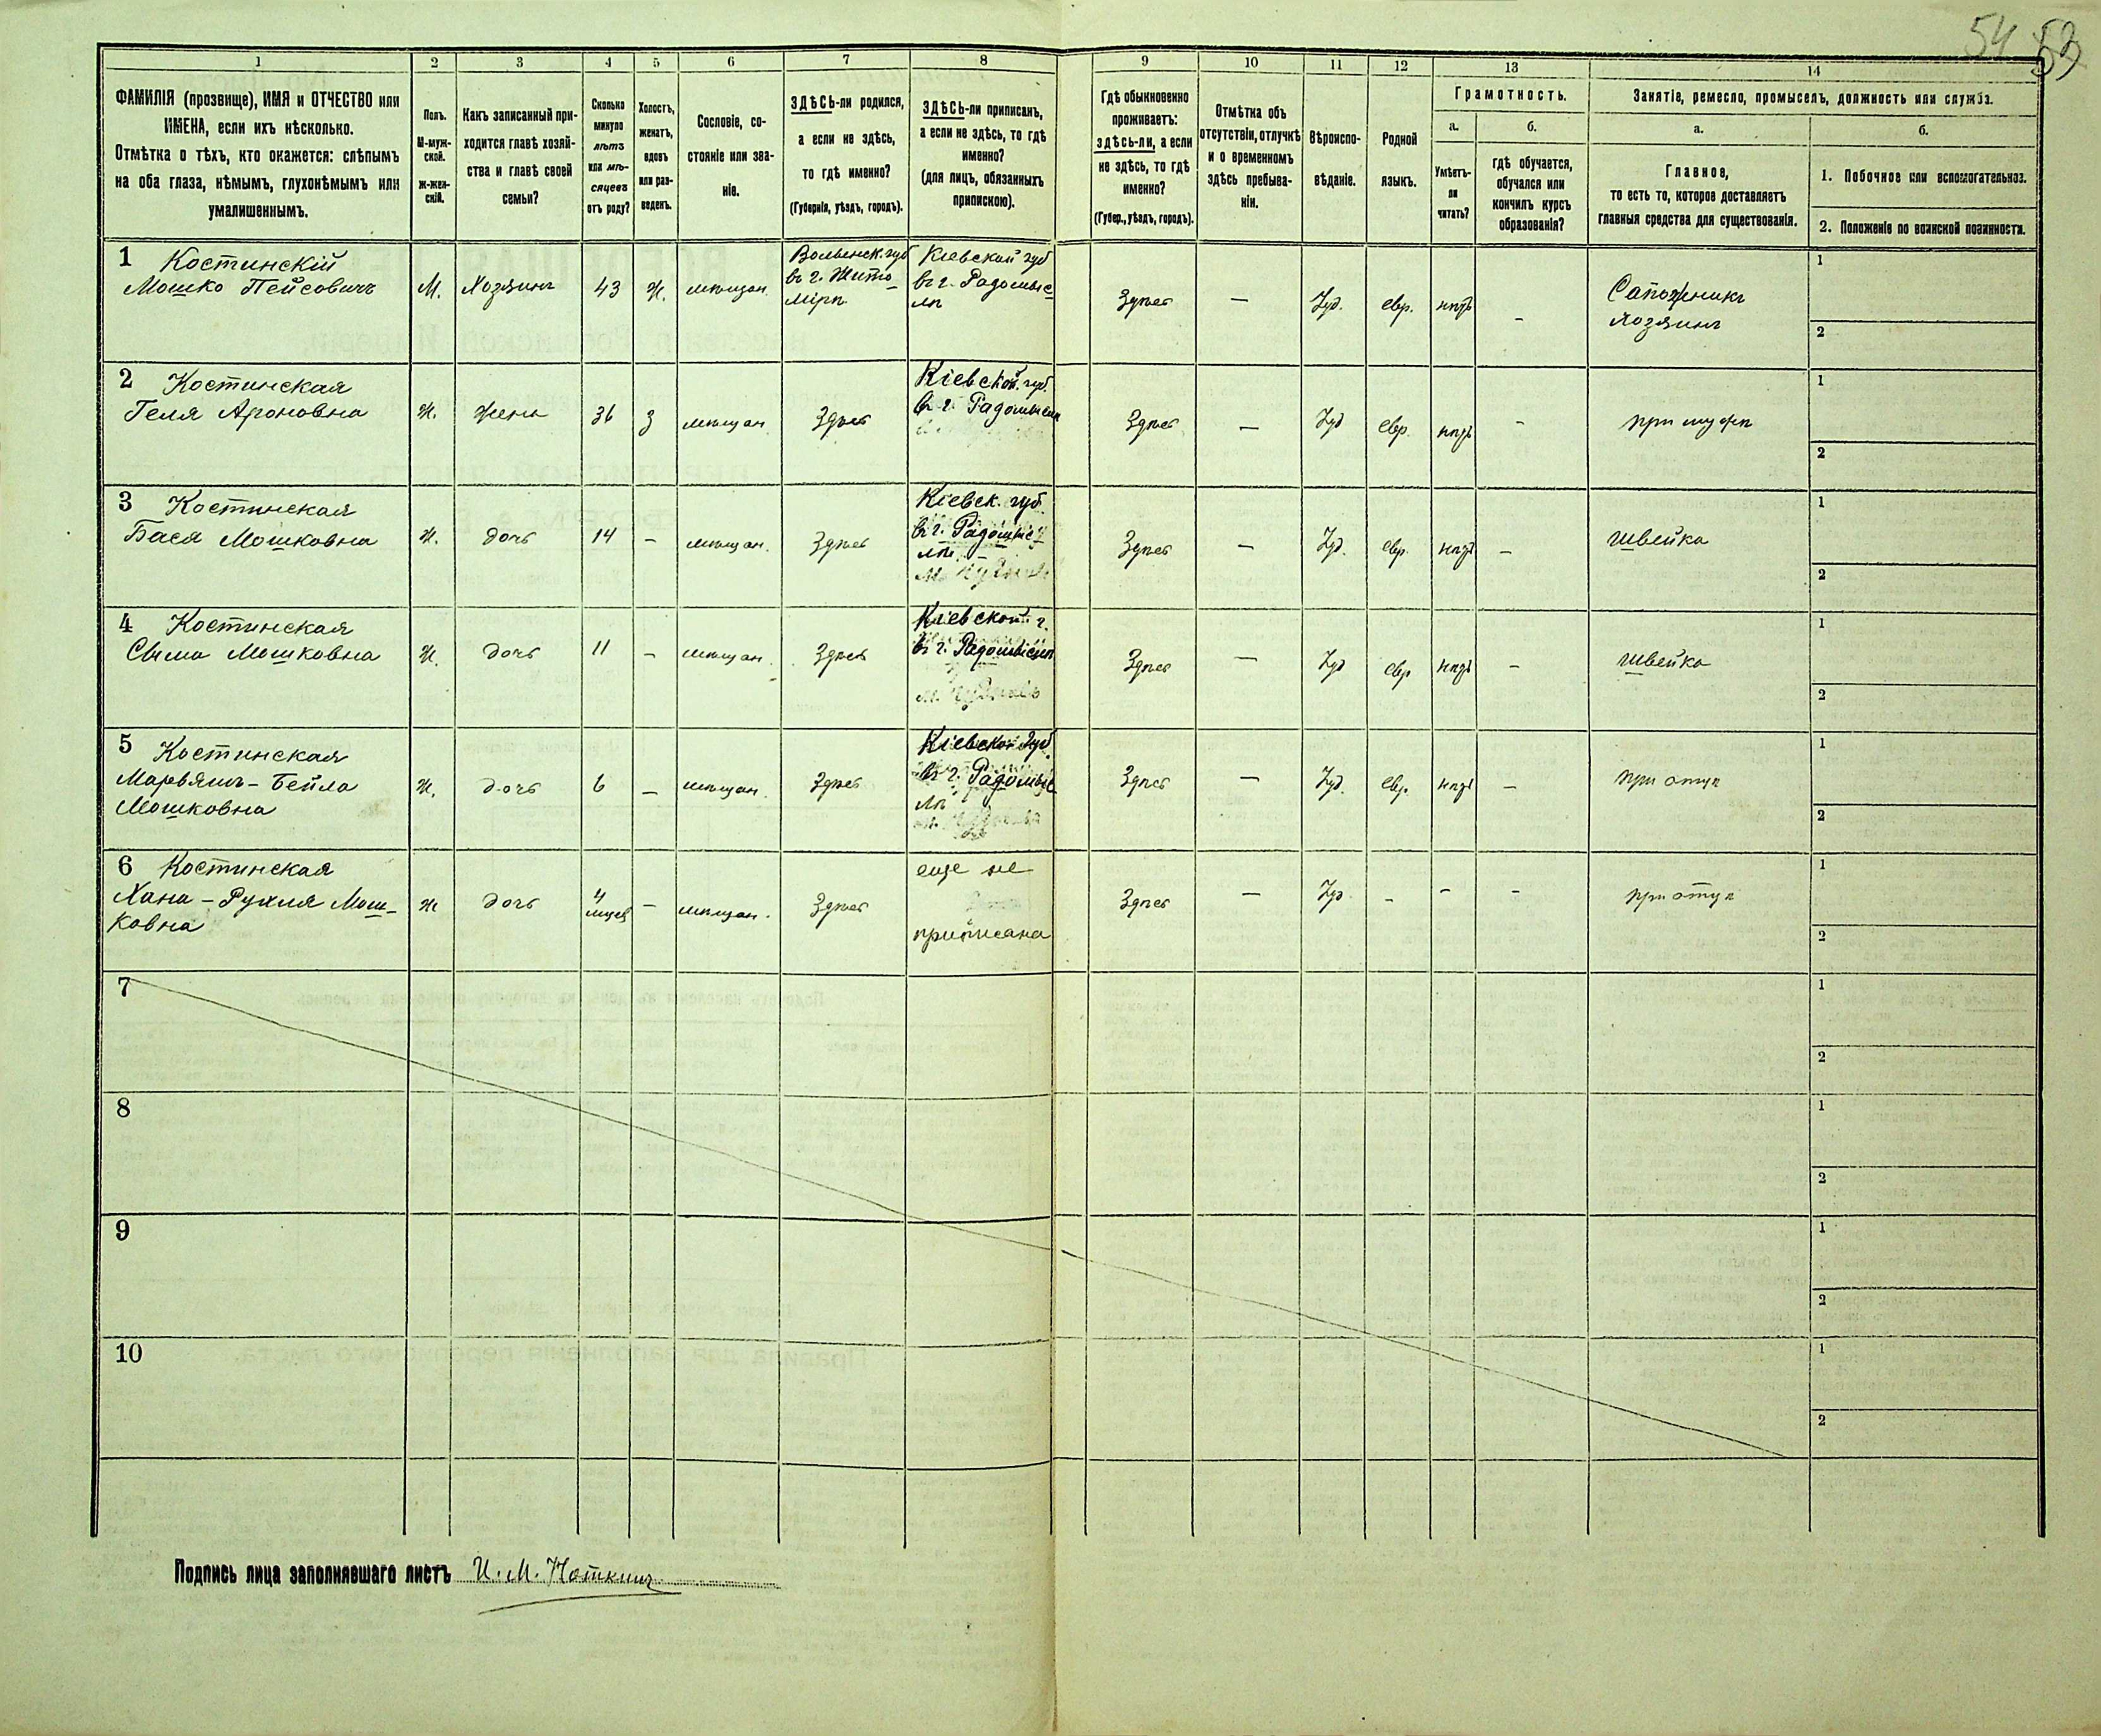 54 53
1 2 3 4 5 6 7 8 9 10 11 12 13 14
ФАМИЛІЯ (прозвище), ИМЯ и ОТЧЕСТВО или
ИМЕНА, если ихъ нѣсколько.
Отмѣтка о тѣхъ, кто окажется: слѣпымъ
на оба глаза, нѣмымъ, глухонѣмымъ или
умалишеннымъ.
Полъ.
М-муж-
ской.
ж-жен-
скій.
Какъ записанный при-
ходится главѣ хозяй-
ства и главѣ своей
семьи?
Сколько
минуло
лѣтъ
или мѣ-
сяцевъ
отъ роду?
Холостъ,
женатъ,
вдовъ
или раз-
веденъ.
Сословіе, со-
стояніе или зва-
ніе.
ЗДѢСЬ-ли родился,
а если не здѣсь,
то гдѣ именно?
(Губернія, уѣздъ, городъ).
ЗДѢСЬ-ли приписанъ,
а если не здѣсь, то гдѣ
именно?
(для лицъ, обязанныхъ
припискою).
Гдѣ обыкновенно
проживаетъ:
здѣсь-ли, а если
не здѣсь, то гдѣ
именно?
(Губер., уѣздъ, городъ).
Отмѣтка объ
отсутствіи, отлучкѣ
и о временномъ
здѣсь пребыва-
ніи.
Вѣроиспо-
вѣданіе.
Родной
языкъ.
Грамотность.
а.
Умѣетъ-
ли
читать?
б.
гдѣ обучается,
обучался или
кончилъ курсъ
образованія?
Занятіе, ремесло, промыселъ, должность или служба.
а.
Главное,
то есть то, которое доставляетъ
главныя средства для существованія.
б.
1. Побочное или вспомогательное.
2. Положеніе по воинской повинности.
1 Костинскій
Мошко Пейсовичъ
М.
Хозяинъ
43
Ж.
мѣщан.
Волынск. губ
въ г. Жито-
мірѣ
Кіевской губ
въ г. Радомыс-
лѣ
Здѣсь
—
Іуд.
евр.
нѣтъ
–
Сапожникъ
хозяинъ
1
2
2 Костинская
Геля Ароновна
Ж.
жена
36
З
мѣщан
Здѣсь
Кіевской губ.
въ г. Радомыслѣ
Здѣсь
—
Іуд
евр.
нѣтъ
–
при мужѣ
1
2
3 Костинская
Бася Мошковна
Ж.
дочь
14
–
мѣщан.
Здѣсь
Кіевск. губ.
въ г. Радомыс-
лѣ
Здѣсь
—
Іуд.
евр.
нѣтъ
–
швейка
1
2
4 Костинская
Сыма Мошковна
Ж.
дочь
11
–
мѣщан.
Здѣсь
Кіевской г.
въ г. Радомыслѣ
Здѣсь
—
Іуд
евр
нѣтъ
–
швейка
1
2
5 Костинская
Марьямъ-Бейла
Мошковна
Ж.
дочь
6
–
мѣщан.
Здѣсь
Кіевской губ
въ г. Радомыс-
лѣ
Здѣсь
—
Іуд.
евр.
нѣтъ
–
при отцѣ
1
2
6 Костинская
Хана-Рухля Мош-
ковна
Ж
дочь
4
мѣсяц
–
мѣщан.
Здѣсь
еще не
приписана
Здѣсь
—
Іуд.
–
–
–
при отцѣ
1
2
7
1
2
8
1
2
9
1
2
10
1
2
Подпись лица заполнявшаго листъ И. М. Ноткинъ